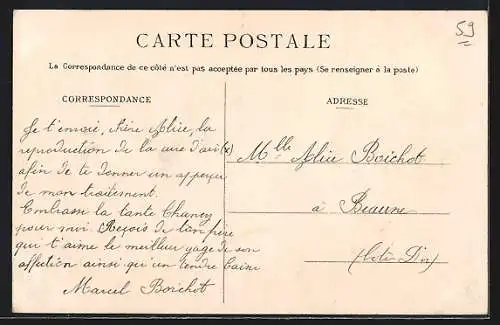 59
CARTE POSTALE
La Correspondance de ce côté n'est pas acceptée par tous les pays (Se renseigner à la poste)
CORRESPONDANCE
Je t'envoie, chère Alice, la
reproduction de la cure d'air (x)
afin de te donner un aperçu
de mon traitement.
Embrasse la tante
pour moi. Reçois de ton père
qui t'aime le meilleur gage de son
affection ainsi qu'un tendre baiser
Marcel Boichot
ADRESSE
Mlle Alice Boichot
à Beaune
(Côte d'Or)